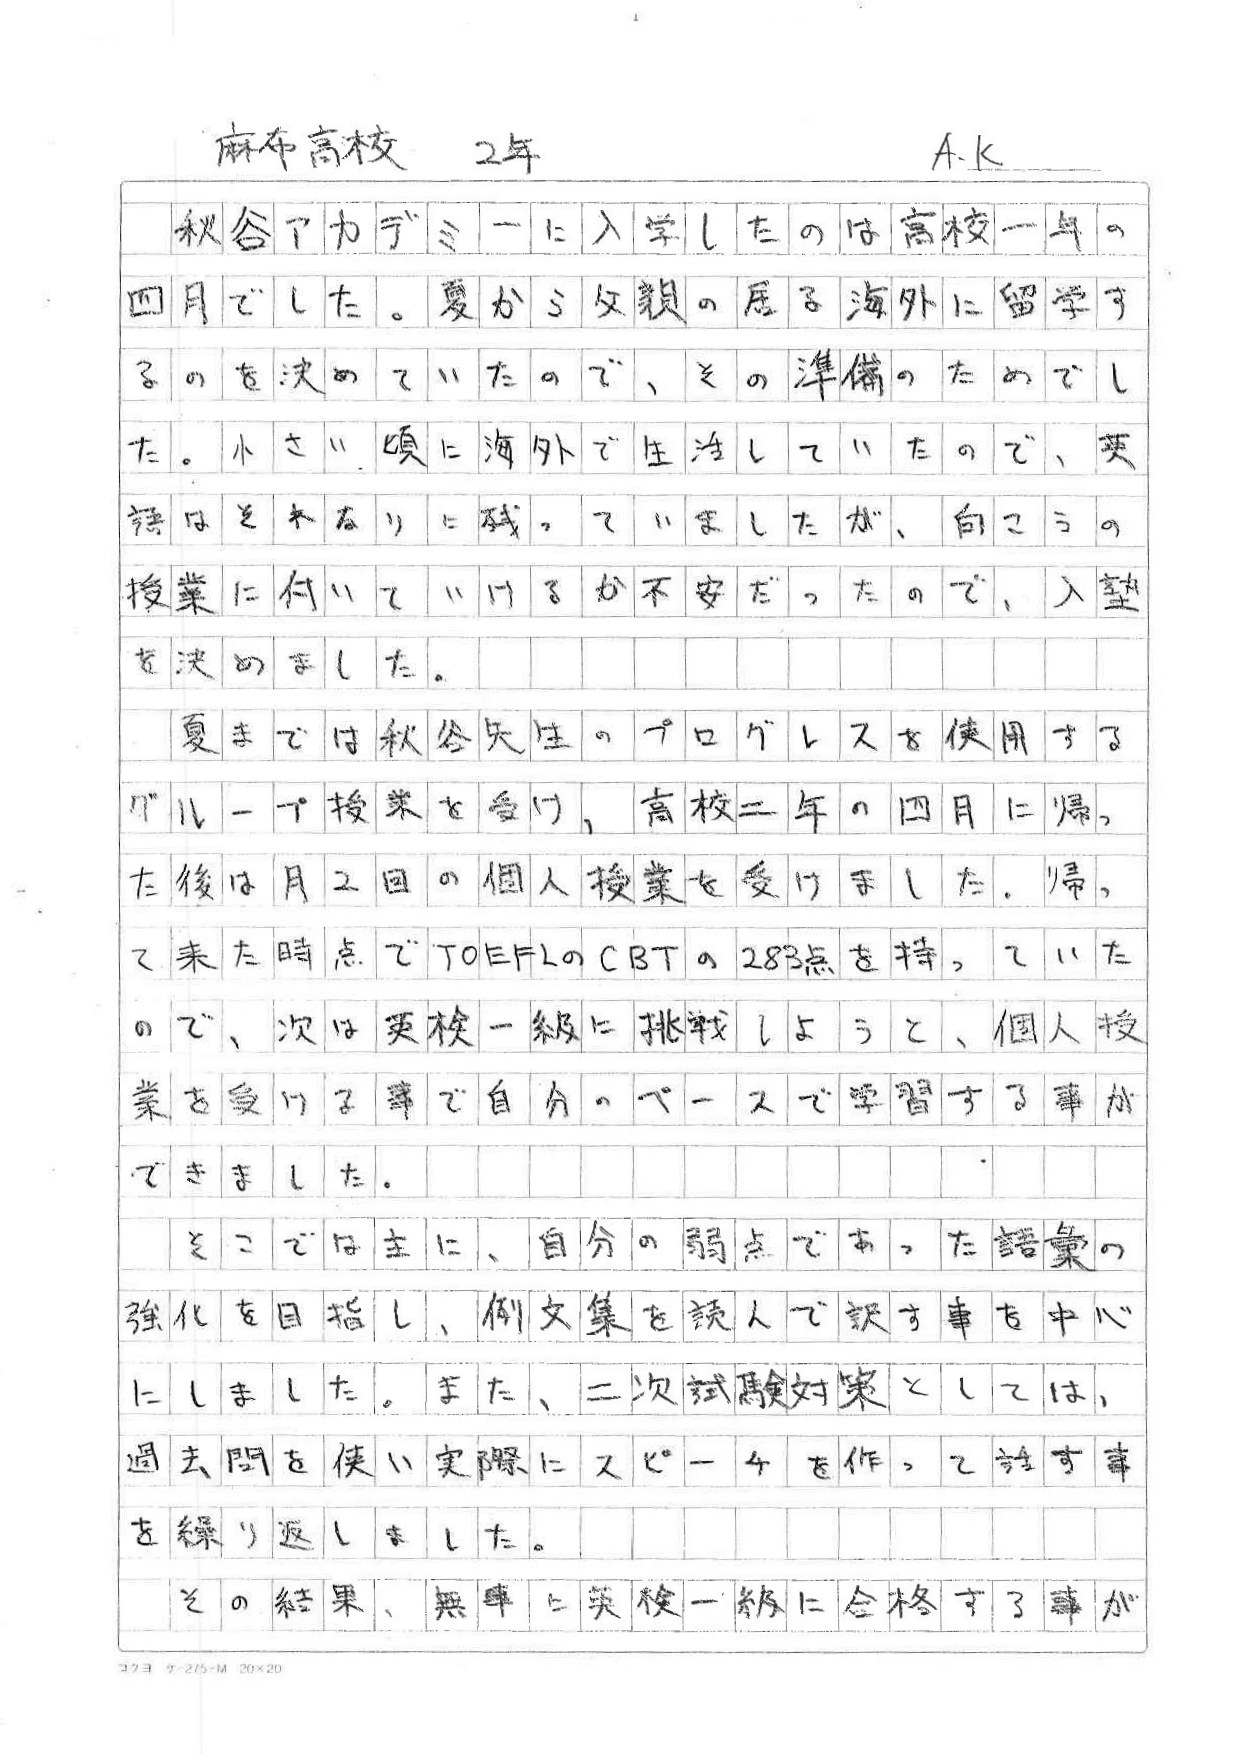 麻布高校 2年 A.K
秋谷アカデミーに入学したのは高校一年の
四月でした。夏から父親の居る海外に留学す
るのを決めていたので、その準備のためでし
た。小さい頃に海外で生活していたので、英
語はそれなりに残っていましたが、向こうの
授業に付いていけるか不安だったので、入塾
を決めました。
夏までは秋谷先生のプログレスを使用する
グループ授業を受け、高校二年の四月に帰っ
た後は月2回の個人授業を受けました。帰っ
て来た時点でTOEFLのCBTの283点を持っていた
ので、次は英検一級に挑戦しようと、個人授
業を受ける事で自分のペースで学習する事が
できました。
そこでは主に、自分の弱点であった語彙の
強化を目指し、例文集を読んで訳す事を中心
にしました。また、二次試験対策としては、
過去問を使い実際にスピーチを作って話す事
を繰り返しました。
その結果、無事に英検一級に合格する事が
コクヨ ケ-275-M 20×20